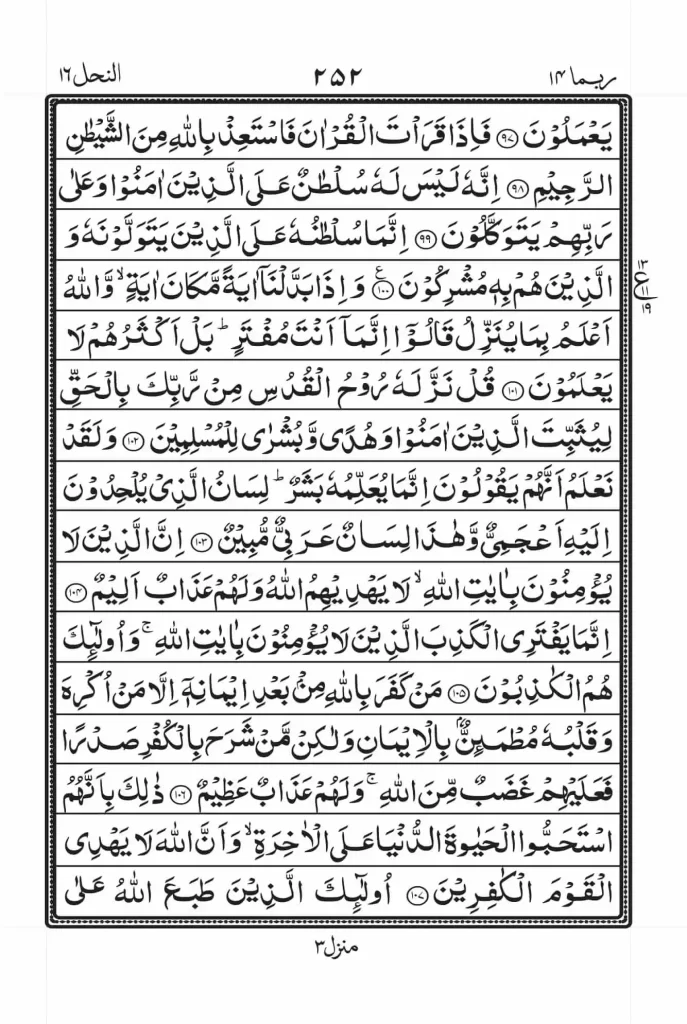 ربما ١٤ ٢٥٢ النحل ١٦
يَعْمَلُوْنَ ﴿۹۷﴾ فَاِذَا قَرَاْتَ الْقُرْاٰنَ فَاسْتَعِذْ بِاللّٰهِ مِنَ الشَّيْطٰنِ
الرَّجِيْمِ ﴿۹۸﴾ اِنَّهٗ لَيْسَ لَهٗ سُلْطٰنٌ عَلَى الَّذِيْنَ اٰمَنُوْا وَعَلٰى
رَبِّهِمْ يَتَوَكَّلُوْنَ ﴿۹۹﴾ اِنَّمَا سُلْطٰنُهٗ عَلَى الَّذِيْنَ يَتَوَلَّوْنَهٗ وَ
الَّذِيْنَ هُمْ بِهٖ مُشْرِكُوْنَ ﴿۱۰۰﴾ ع وَاِذَا بَدَّلْنَاۤ اٰيَةً مَّكَانَ اٰيَةٍ ۙ وَّاللّٰهُ
١٣ ع ١١ ١٩
اَعْلَمُ بِمَا يُنَزِّلُ قَالُوْۤا اِنَّمَاۤ اَنْتَ مُفْتَرٍ ؕ بَلْ اَكْثَرُهُمْ لَا
يَعْلَمُوْنَ ﴿۱۰۱﴾ قُلْ نَزَّلَهٗ رُوْحُ الْقُدُسِ مِنْ رَّبِّكَ بِالْحَقِّ
لِيُثَبِّتَ الَّذِيْنَ اٰمَنُوْا وَهُدًى وَّبُشْرٰى لِلْمُسْلِمِيْنَ ﴿۱۰۲﴾ وَلَقَدْ
نَعْلَمُ اَنَّهُمْ يَقُوْلُوْنَ اِنَّمَا يُعَلِّمُهٗ بَشَرٌ ؕ لِسَانُ الَّذِيْ يُلْحِدُوْنَ
اِلَيْهِ اَعْجَمِيٌّ وَّهٰذَا لِسَانٌ عَرَبِيٌّ مُّبِيْنٌ ﴿۱۰۳﴾ اِنَّ الَّذِيْنَ لَا
يُؤْمِنُوْنَ بِاٰيٰتِ اللّٰهِ ۙ لَا يَهْدِيْهِمُ اللّٰهُ وَلَهُمْ عَذَابٌ اَلِيْمٌ ﴿۱۰۴﴾
اِنَّمَا يَفْتَرِى الْكَذِبَ الَّذِيْنَ لَا يُؤْمِنُوْنَ بِاٰيٰتِ اللّٰهِ ۚ وَاُولٰٓئِكَ
هُمُ الْكٰذِبُوْنَ ﴿۱۰۵﴾ مَنْ كَفَرَ بِاللّٰهِ مِنْۢ بَعْدِ اِيْمَانِهٖۤ اِلَّا مَنْ اُكْرِهَ
وَقَلْبُهٗ مُطْمَئِنٌّۢ بِالْاِيْمَانِ وَلٰكِنْ مَّنْ شَرَحَ بِالْكُفْرِ صَدْرًا
فَعَلَيْهِمْ غَضَبٌ مِّنَ اللّٰهِ ۚ وَلَهُمْ عَذَابٌ عَظِيْمٌ ﴿۱۰۶﴾ ذٰلِكَ بِاَنَّهُمُ
اسْتَحَبُّوا الْحَيٰوةَ الدُّنْيَا عَلَى الْاٰخِرَةِ ۙ وَاَنَّ اللّٰهَ لَا يَهْدِى
الْقَوْمَ الْكٰفِرِيْنَ ﴿۱۰۷﴾ اُولٰٓئِكَ الَّذِيْنَ طَبَعَ اللّٰهُ عَلٰى
منزل ٣